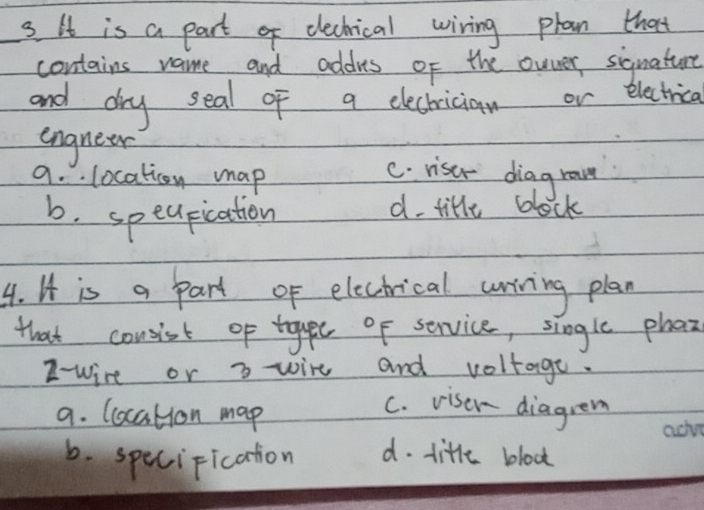 3 It is a part of electrical wiring plan that
contains name and addres of the owner, signature
and dry seal of a electrician or electrical
engneer
a. location map c. riser diagram
b. specification d. title block
4. It is a part of electrical wiring plan
that consist of type of service, single phaz
2-wire or 3-wire and voltage.
a. location map c. riser diagrem
b. specification d. title block